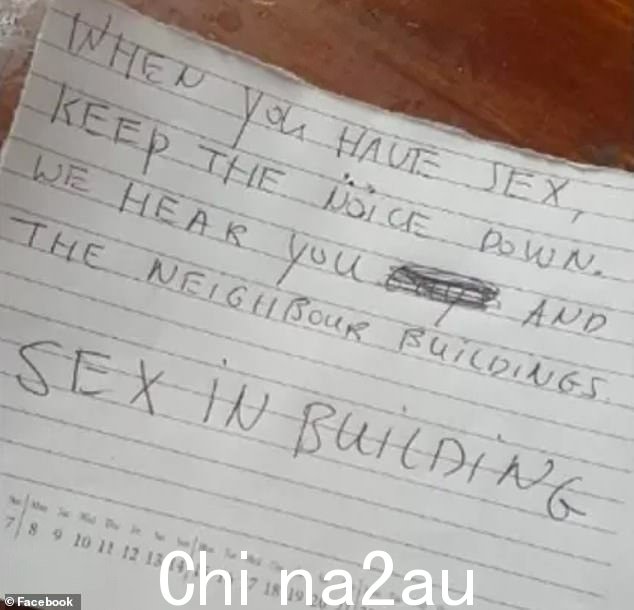 WHEN you HAVE SEX,
KEEP THE NOICE DOWN.
WE HEAR YOU AND
THE NEIGHBOUR BUILDINGS.
SEX IN BUILDING
7 8 9 10 11 12 13 17 18 19
Chi na2au
© Facebook